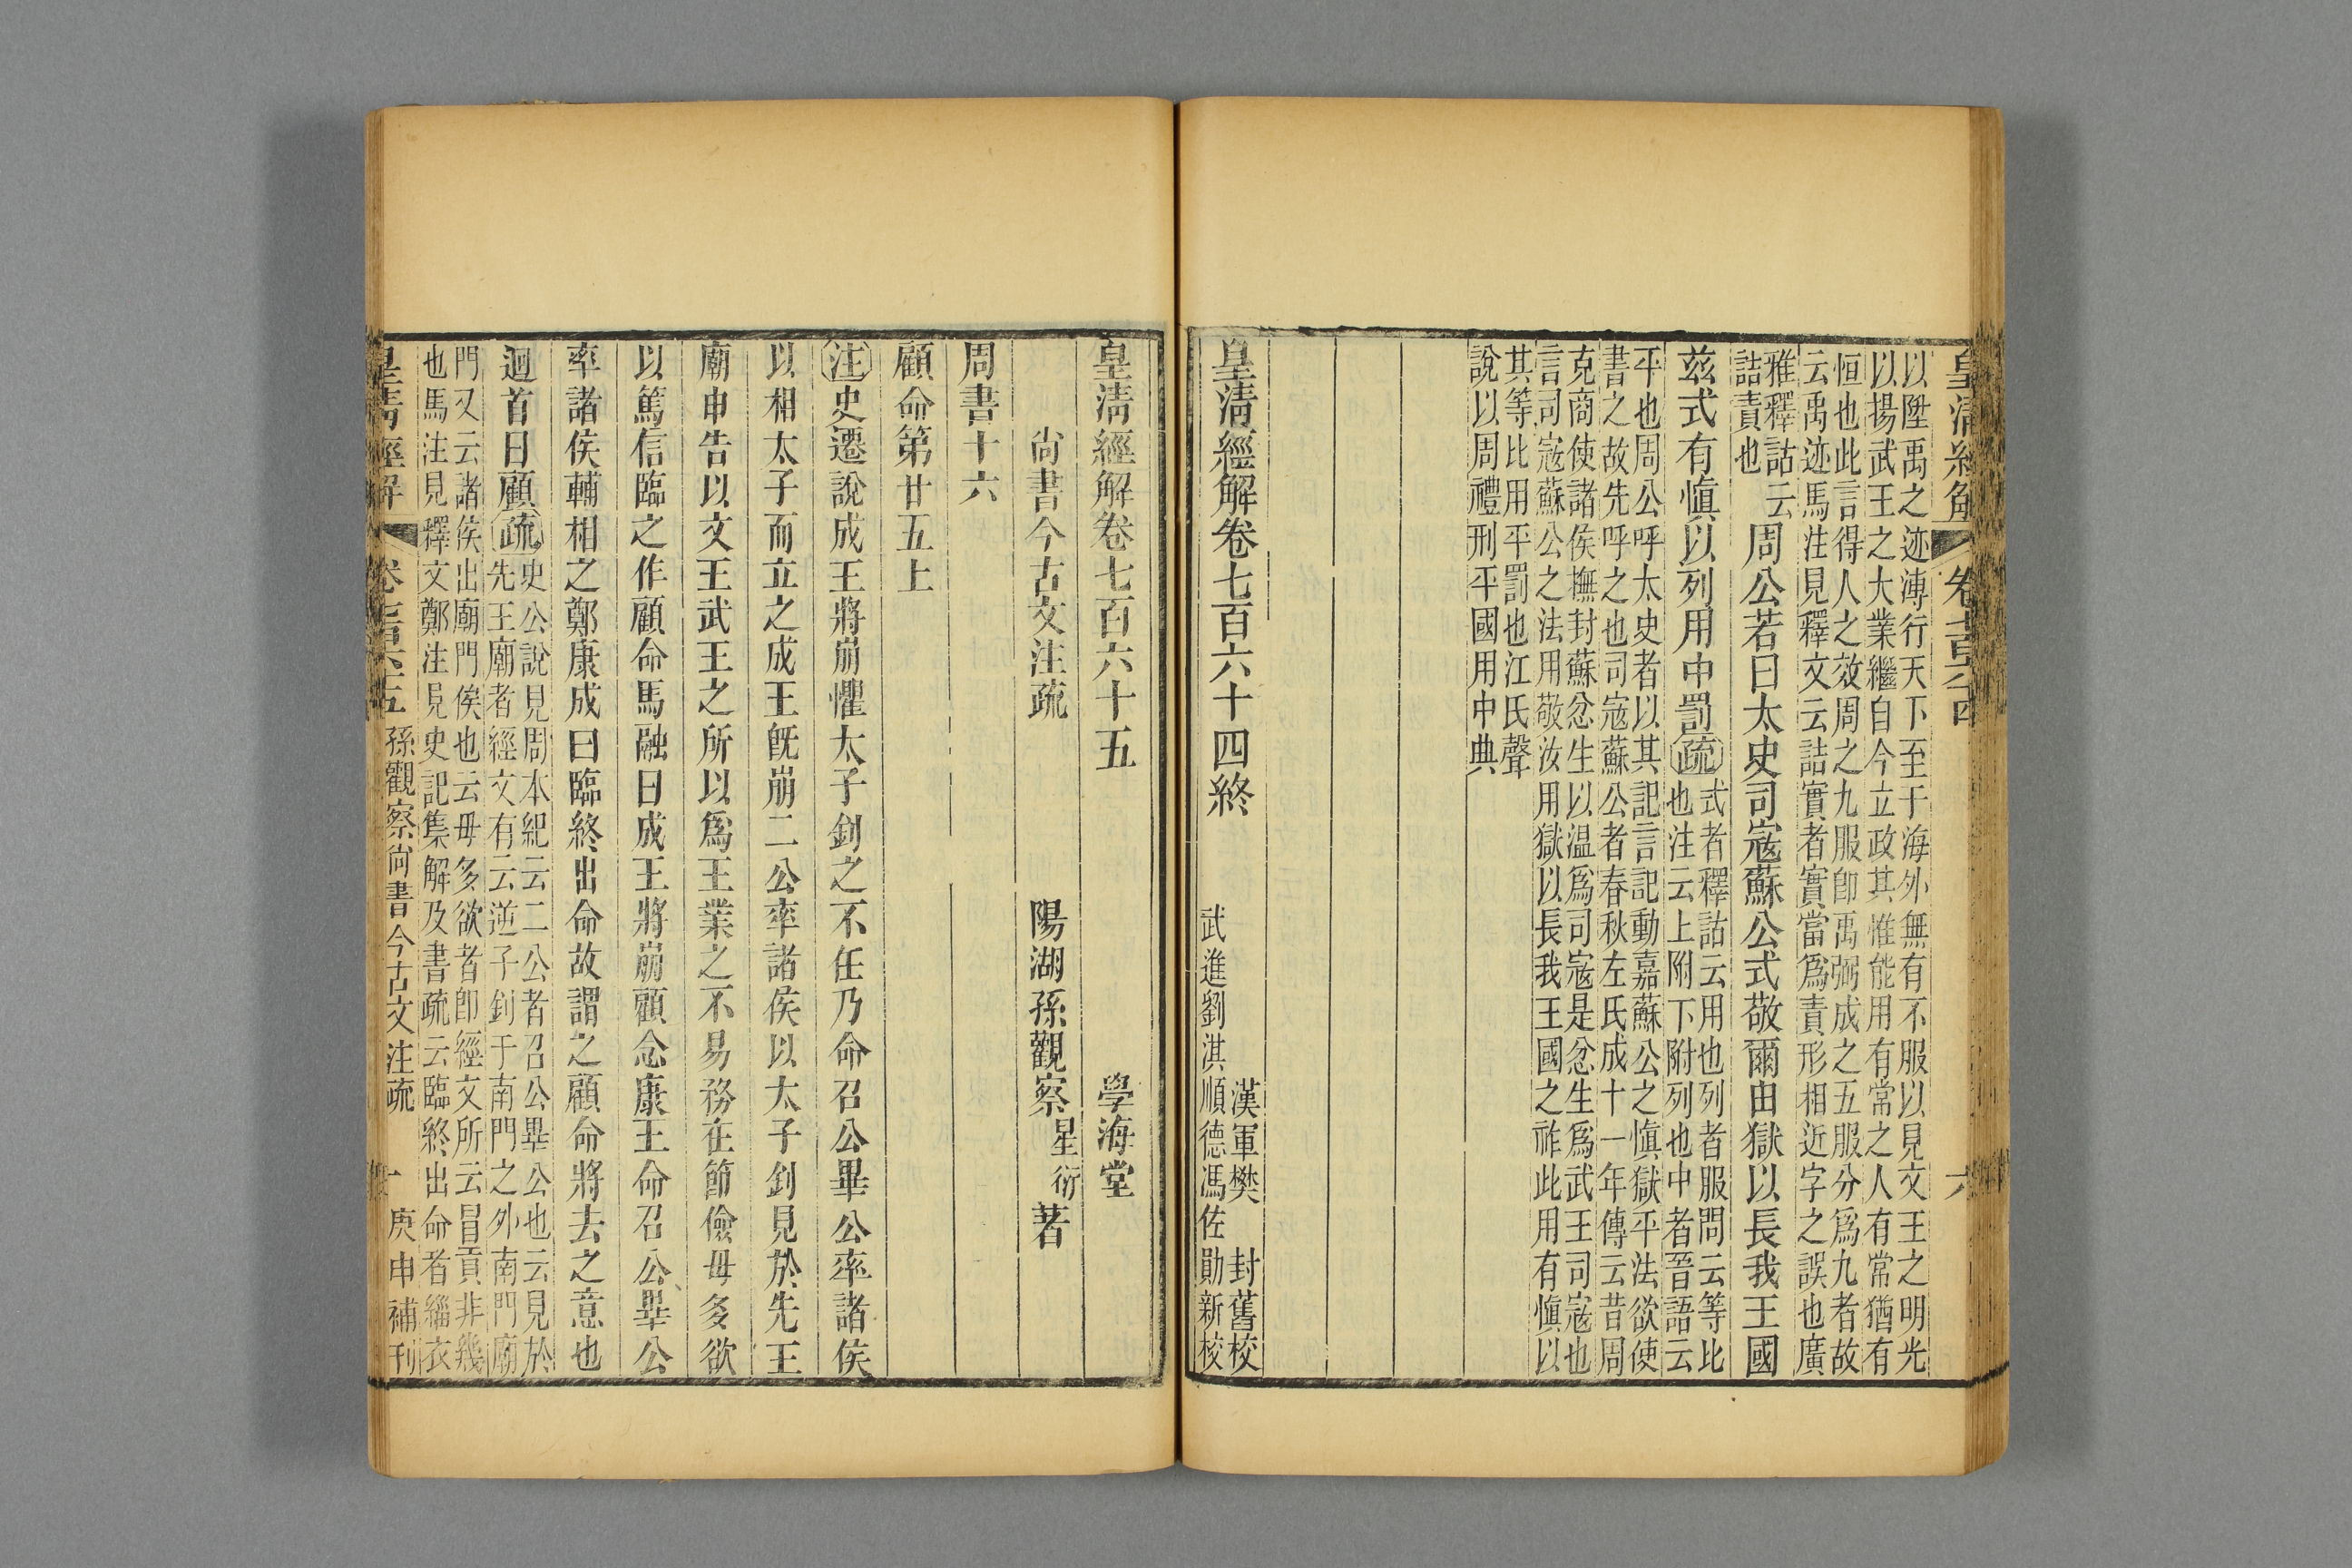 皇清經解
卷七百六十四
六
以陞禹之迹溥行天下至于海外無有不服以見文王之明光
以揚武王之大業繼自今立政其惟能用有常之人有常猶有
恒也此言得人之效周之九服卽禹弼成之五服分爲九者故
云禹迹馬注見釋文云詰實者實當爲責形相近字之誤也廣
雅釋詁云
詰責也
周公若曰太史司寇蘇公式敬爾由獄以長我王國
茲式有愼以列用中罰疏
式者釋詁云用也列者服問云等比
也注云上附下附列也中者晉語云
平也周公呼太史者以其記言記動嘉蘇公之愼獄平法欲使
書之故先呼之也司寇蘇公者春秋左氏成十一年傳云昔周
克商使諸侯撫封蘇忿生以温爲司寇是忿生爲武王司寇也
言司寇蘇公之法用敬汝用獄以長我王國之祚此用有愼以
其等比用平罰也江氏聲
說以周禮刑平國用中典
皇清經解卷七百六十四終
漢軍樊封舊校
武進劉淇順德馮佐勛新校
皇清經解卷七百六十五
學海堂
尚書今古文注疏
陽湖孫觀察星衍著
周書十六
顧命第廿五上
注史遷說成王將崩懼太子釗之不任乃命召公畢公率諸侯
以相太子而立之成王旣崩二公率諸侯以太子釗見於先王
廟申告以文王武王之所以爲王業之不易務在節儉毋多欲
以篤信臨之作顧命馬融曰成王將崩顧念康王命召公畢公
率諸侯輔相之鄭康成曰臨終出命故謂之顧命將去之意也
迴首曰顧疏
史公說見周本紀云二公者召公畢公也云見於
先王廟者經文有云逆子釗于南門之外南門廟
門又云諸侯出廟門俟也云毋多欲者卽經文所云冒貢非幾
也馬注見釋文鄭注見史記集解及書疏云臨終出命者緇衣
皇清經解
卷七百六十五
孫觀察尚書今古文注疏
一
庚申補刊